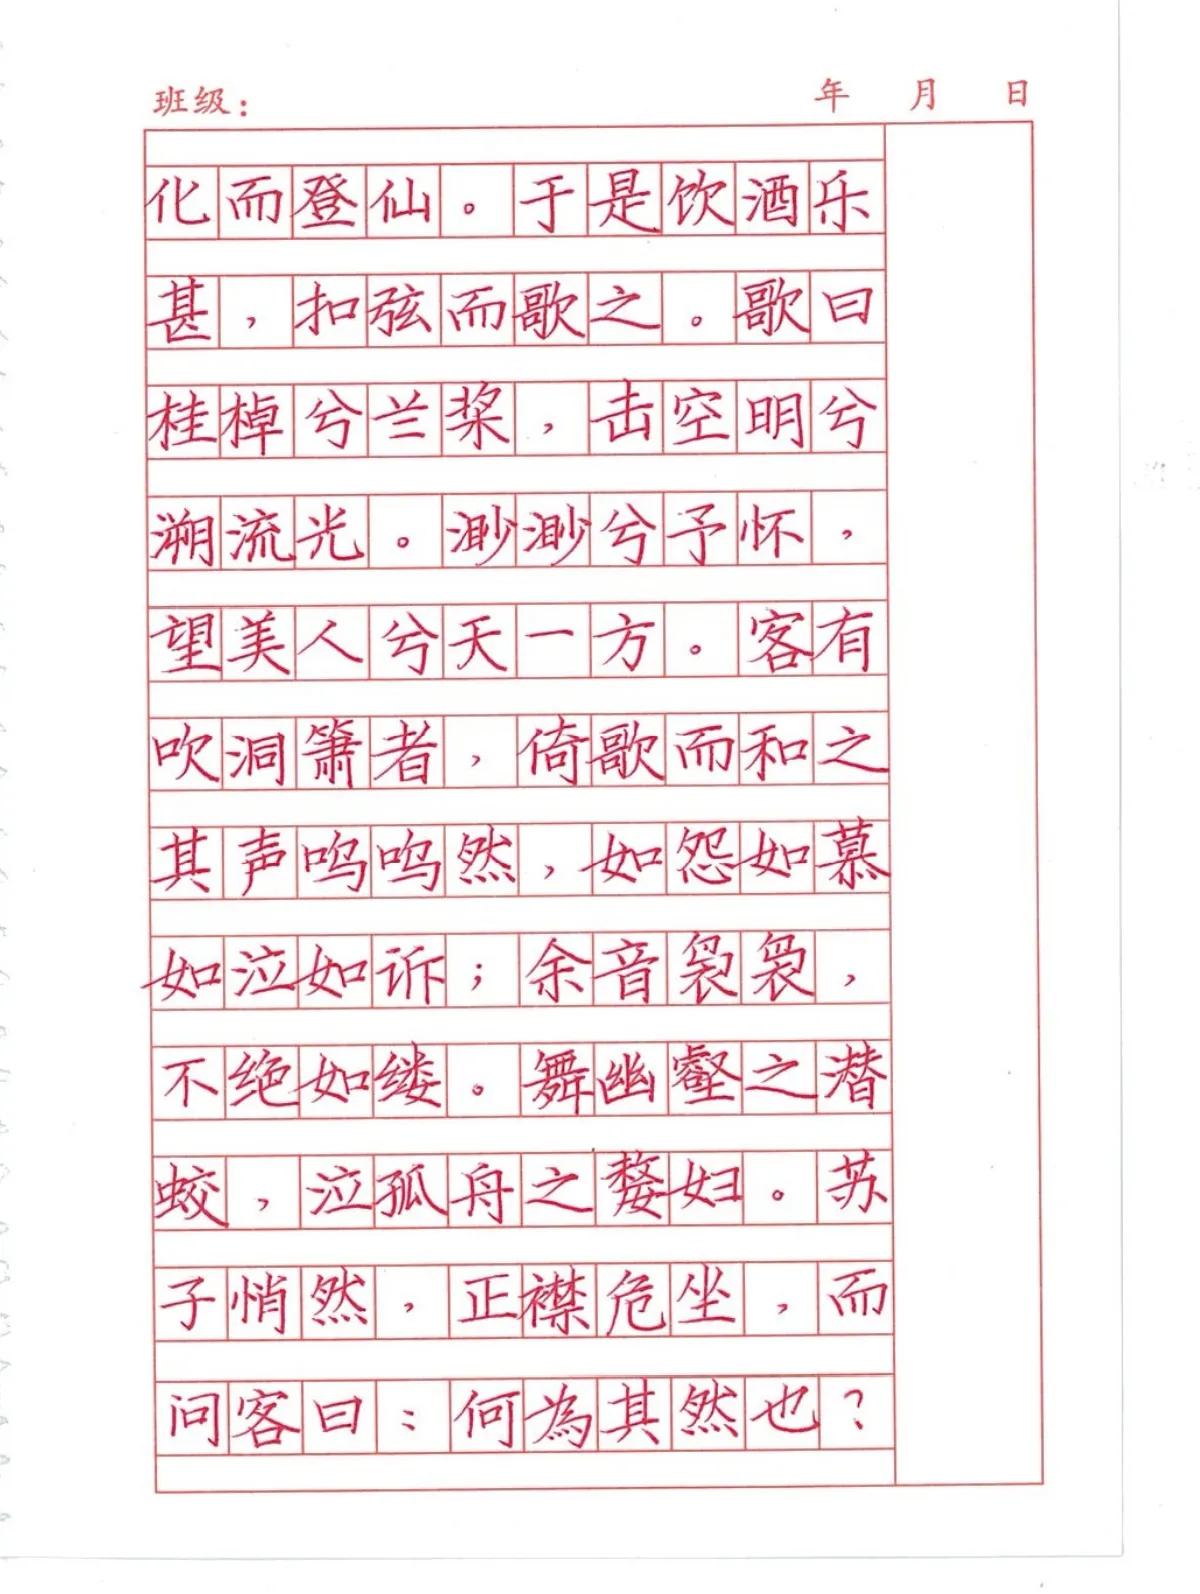 班级： 年 月 日
化而登仙。于是饮酒乐
甚，扣弦而歌之。歌曰
桂棹兮兰桨，击空明兮
溯流光。渺渺兮予怀，
望美人兮天一方。客有
吹洞箫者，倚歌而和之
其声呜呜然，如怨如慕
如泣如诉；余音袅袅，
不绝如缕。舞幽壑之潜
蛟，泣孤舟之嫠妇。苏
子悄然，正襟危坐，而
问客曰：何為其然也？